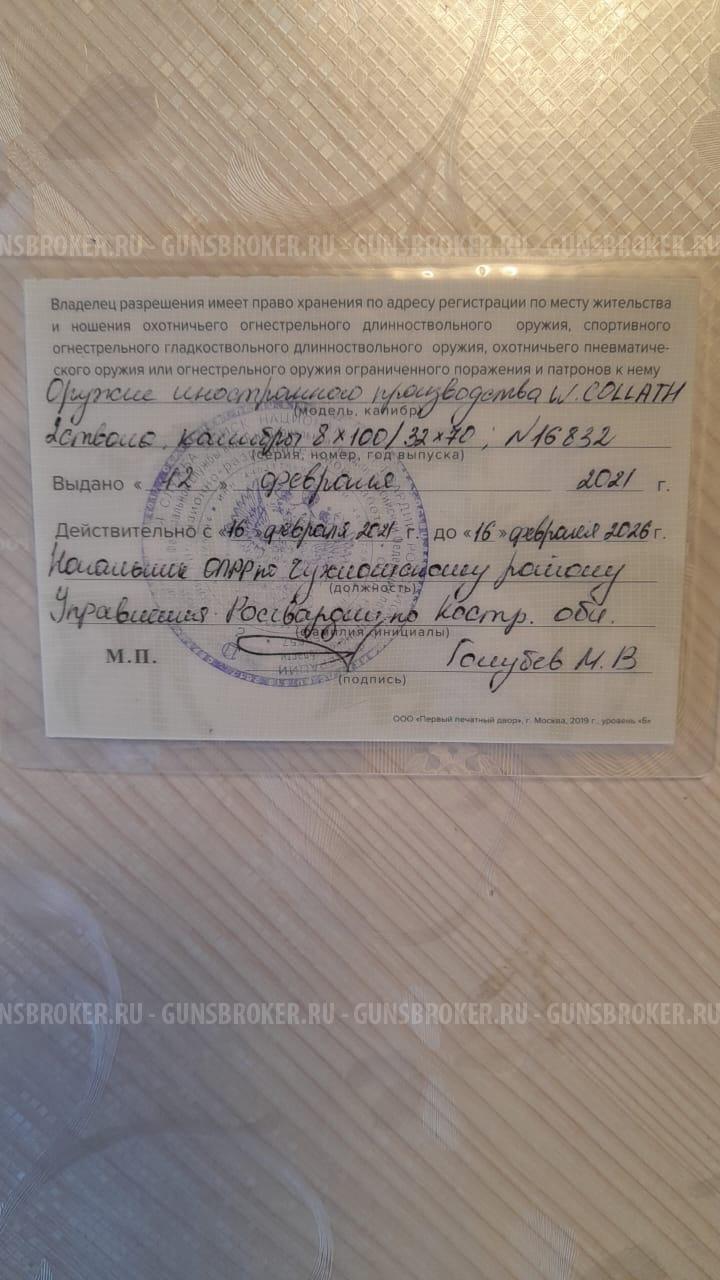 NSBROKER.RU - GUNSBROKER.RU - GUNSBROKER.RU - GUNSBROKER.RU
Владелец разрешения имеет право хранения по адресу регистрации по месту жительства
и ношения охотничьего огнестрельного длинноствольного оружия, спортивного
огнестрельного гладкоствольного длинноствольного оружия, охотничьего пневматиче-
ского оружия или огнестрельного оружия ограниченного поражения и патронов к нему
Оружие иностранного производства W. COLLATH
(модель, калибр)
2ствола, калибры 8×100/32×70; №16832
(серия, номер, год выпуска)
Выдано « 12 » февраля 2021 г.
Действительно с «16 » февраля 2021 г. до «16 » февраля 2026 г.
Начальник по Чухломскому району
(должность)
Управления Росгвардии по Костр. обл.
(фамилия, инициалы)
М.П. Голубев М. В
(подпись)
ООО «Первый печатный двор», г. Москва, 2019 г., уровень «Б»
NSBROKER.RU - GUNSBROKER.RU - GUNSBROKER.RU - GUNSBROKER.RU